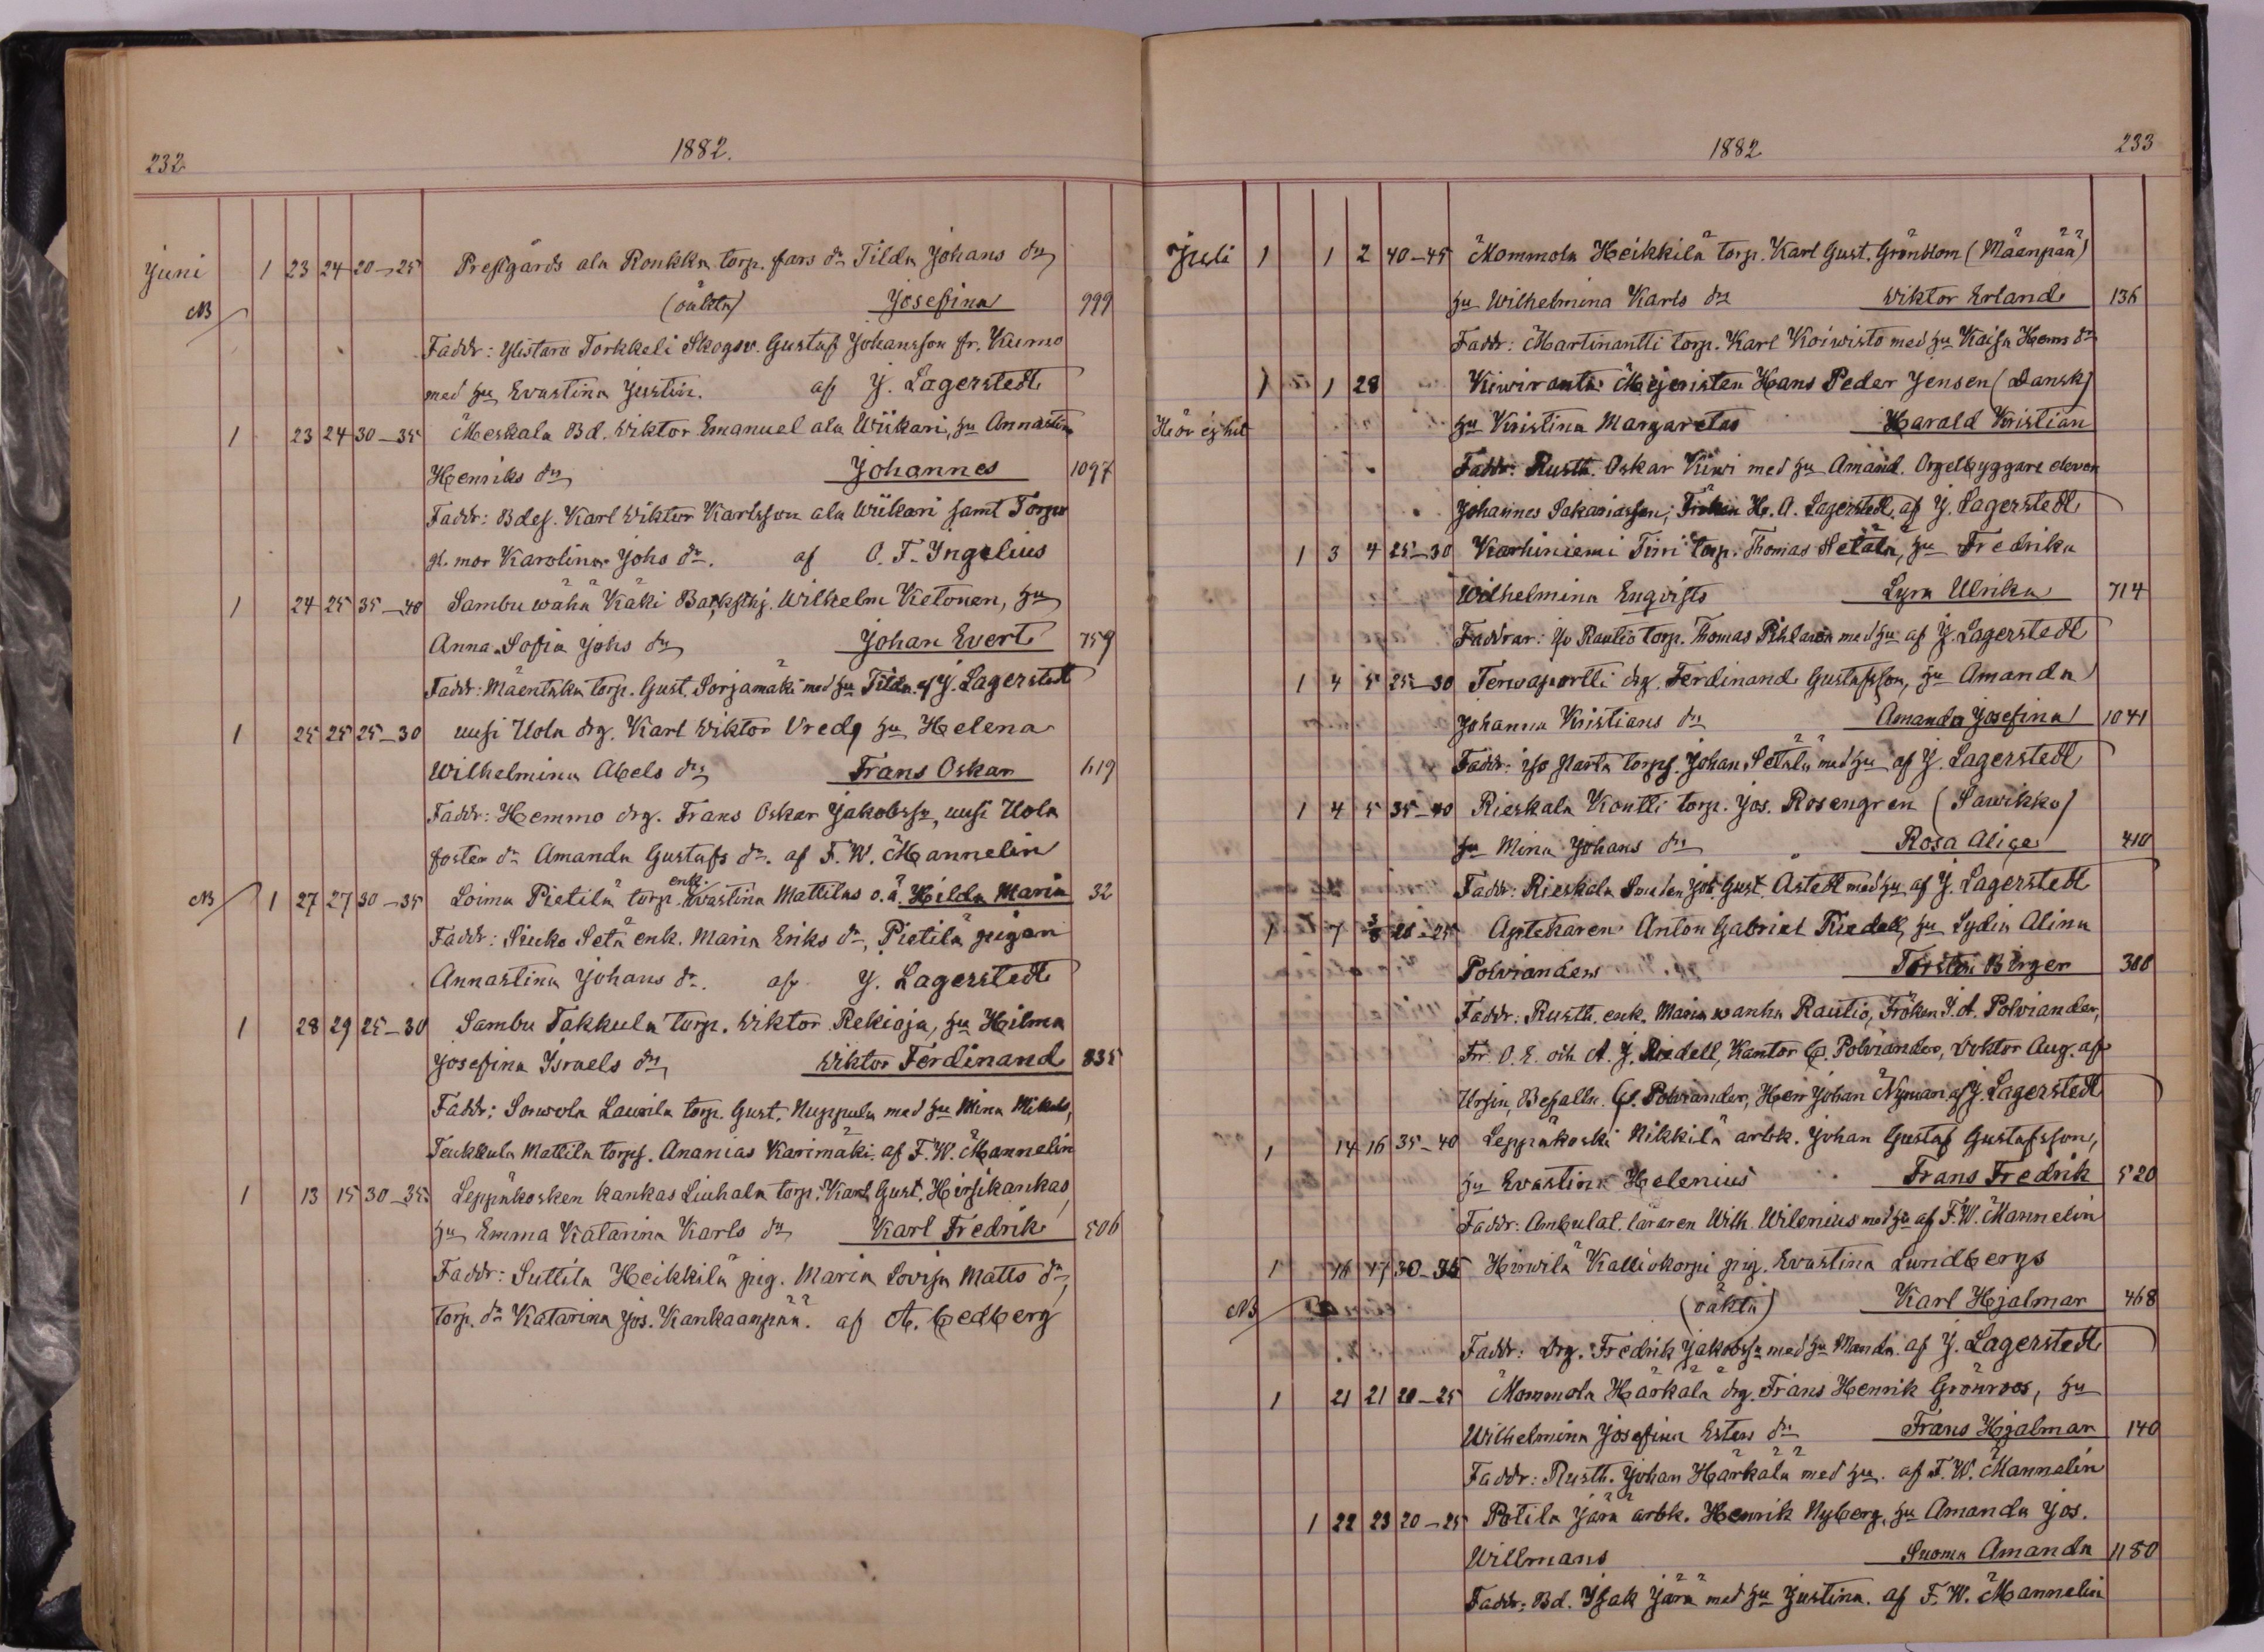 232 1882.
Juni 1 23 24 20–25 Prestgårds ala Ronkka torp. fars dr Tilda Johans dr
NB (oäkta) Josefina 999
Faddr: Ylistaro Torkkeli Skogsv. Gustaf Johansson fr. Kumo
med hu Evastina Justin. af J. Lagerstedt
1 23 24 30–35 Meskala Bd. Wiktor Emanuel ala Wiikari, hu Annastina
Henriks dr Johannes 1097
Faddr: Bdes. Karl Wiktor Karlsson ala Wiikari samt Torpw
gl. mor Karolina Johs dr. af O. F. Yngelius
1 24 25 35–40 Sambu wähä Käki Wilhelm Ketonen, hu
Anna Sofia Johs dr Johan Evert 759
Faddr: Mäentaka torp. Gust. Sorjamäki med hu Tilda. af J. Lagerstedt
1 25 25 25–30 uusi Uola drg. Karl Wiktor Vred, hu Helena
Wilhelmina Abels dr Frans Oskar 619
Faddr: Hemmo drg. Frans Oskar Jakobss., uusi Uola
foster dr Amanda Gustafs dr. af F. W. Mannelin
NB 1 27 27 30–35 Loima Pietilä torp. enk. Evastina Mattilas o.ä. Hilda Maria 32
Faddr: Siuko Setä enk. Maria Eriks dr, Pietilä pigan
Annastina Johans dr. af J. Lagerstedt
1 28 29 25–30 Sambu Takkula torp. Wiktor Rekioja, hu Hilma
Josefina Israels dr Wiktor Ferdinand 835
Faddr: Sonvola Laurila torp. Gust. Nuppula med hu Mina Mikaels,
Teukkula Mattila torps. Ananias Karimäki. af F. W. Mannelin
1 13 15 30–35 Leppäkosken kankas Liuhala torp. Karl Gust. Hirsikankas,
hu Emma Katarina Karls dr Karl Fredrik 506
Faddr: Suttila Heikkilä pig. Maria Lovisa Matts dr,
torp. dr Katarina Jos. Kankaanpää. af A. Cedberg
1882 233
Juli 1 1 2 40–45 Mommola Heikkilä torp. Karl Gust. Grönblom (Mäenpää)
hu Wilhelmina Karls dr Wiktor Erland 136
Faddr: Martinantti torp. Karl Koivisto med hu Kaisa Hems dr
1 1 28 Kiwiranta Mejeristen Hans Peder Jensen (Dansk)
Hör ej hit hu Kristina Margaretas Harald Kristian
Faddr: Rusth. Oskar Kiwi med hu Amand. Orgelbyggare eleven
Johannes Sakariassen; Fröken H. A. Lagerstedt, af J. Lagerstedt
1 3 4 25–30 Karhiniemi Tiiri torp. Thomas Setälä, hu Fredrika
Wilhelmina Enqvists Lyra Ulrika 714
Faddrar: Yo Rautio torp. Thomas Pihlawa med hu af J. Lagerstedt
1 4 5 25–30 Terwaportti drg. Ferdinand Gustafsson, hu Amanda
Johanna Kristians dr Amanda Josefina 1041
Faddr: iso Narta torps. Johan Setälä med hu af J. Lagerstedt
1 4 5 35–40 Rieskala Kontti torp. Jos. Rosengren (Sawikko)
hu Mina Johans dr Rosa Aliça 410
Faddr: Rieskala Smeden Joh. Gust. Åstedt med hu af J. Lagerstedt
1 7 3/8 20–25 Aptekaren Anton Gabriel Riedell, hu Lydia Alina
Polvianders Torsten Birger 388
Faddr: Rusth. enk. Maria wanha Rautio, Fröken I. A. Polviander,
Frr. O. E. och A. J. Riedell, Kantor C. Polviander, Doktor Aug. af
Ursin, Befalln. G. Polviander, Herr Johan Nyman, af J. Lagerstedt
1 14 16 35–40 Leppäkoski Nikkilä arbk. Johan Gustaf Gustafsson,
hu Evastina Helenius Frans Fredrik 520
Faddr: Ambulat. läraren Wilh. Wilenius med hu af F. W. Mannelin
1 16 17 30–35 Hirwilä Kalliokorpi pig. Evastina Lundbergs
NB (oäkta) Karl Hjalmar 468
Faddr: Drg. Fredrik Jakobss. med hu Manda. af J. Lagerstedt
1 21 21 20–25 Mommola Härkälä drg. Frans Henrik Grönroos, hu
Wilhelmina Josefina Esters dr Frans Hjalmar 140
Faddr: Rusth. Johan Härkälä med hu. af F. W. Mannelin
1 22 23 20–25 Potila Järä arbk. Henrik Nyberg, hu Amanda Jos.
Willmans Suoma Amanda 1180
Faddr: Bd. Isak Järä med hu Justina. af F. W. Mannelin